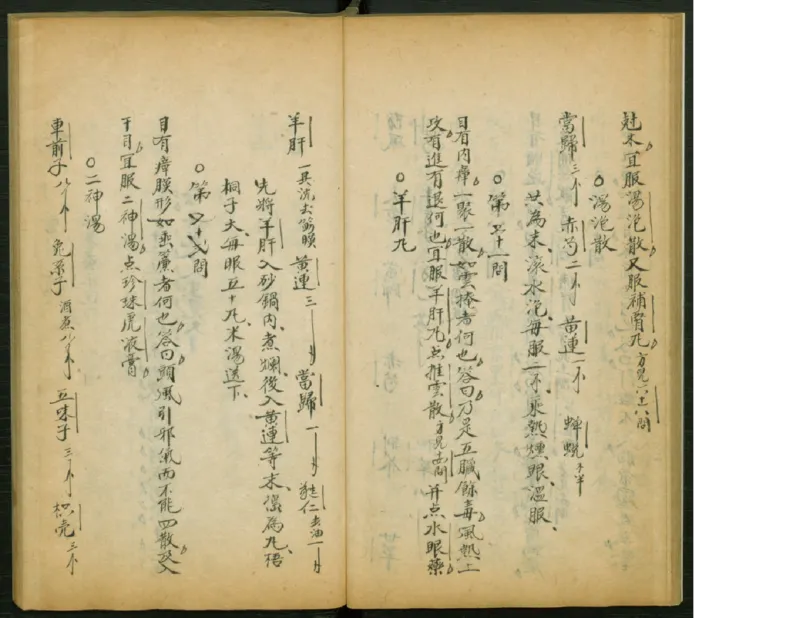 尅木宜服湯泡散又服補腎丸方見六十八問
○湯泡散
當歸三个 赤芍二个 黄連一个 蟬蛻
共為末滾水泡每服二个乘熱燻眼溫服
○第七十一問
目有內瘴一聚一散如雲捧者何也答曰乃是五臟餘毒風熱上
攻有進有退何也宜服羊肝丸点推雲散方見 問并点水眼藥
○羊肝丸
羊肝一具洗去筋膜 黄連三 當歸一 甤仁去油一
先將羊肝入砂鍋內煮爛後入黄連等末搗為丸梧
桐子大每服五十丸米湯送下
○第七十二問
目有瘴膜形如垂簾者何也答曰頭風引邪氣而不能四散及入
于目宜服二神湯点珍珠虎液膏
○二神湯
車前子八个 兔絲子酒煮八个 五味子三个 枳壳三个